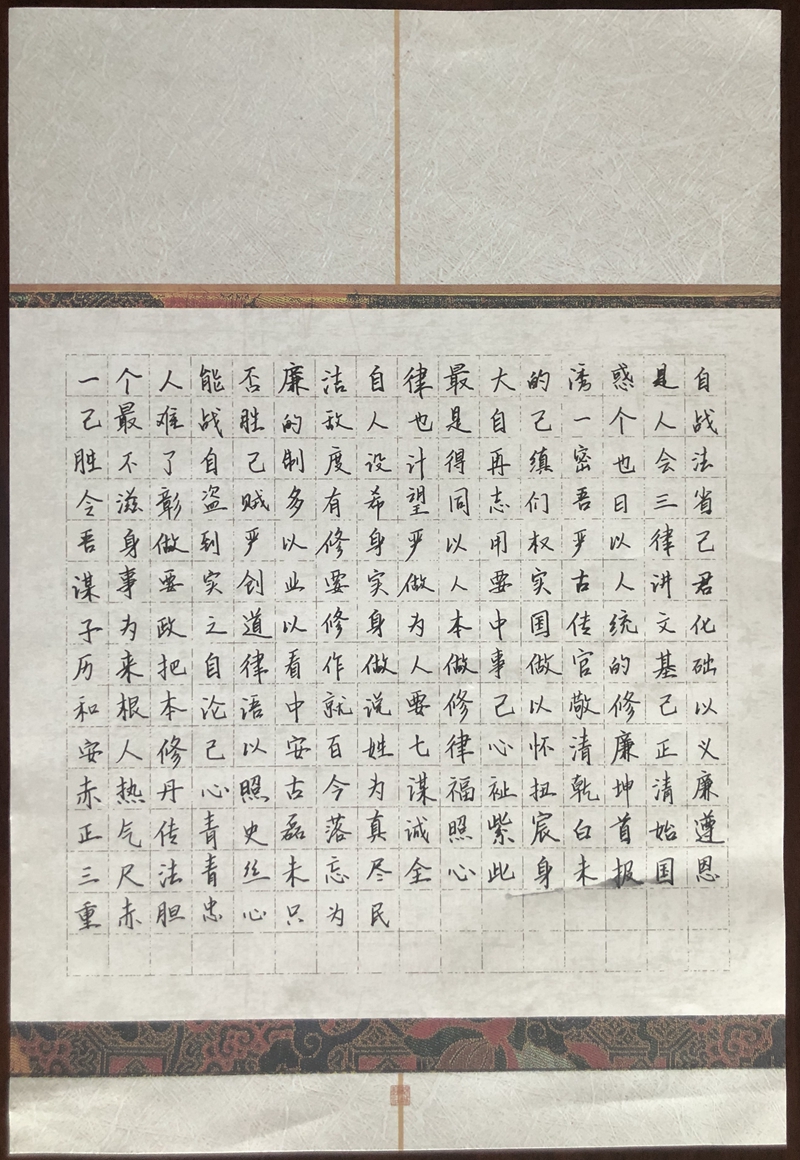 一个人能否廉洁自律最大的诱惑是自
己最难战胜的敌人也是自己一个人战
胜不了自己制度设计得再缜密也会法
令滋彰盗贼多有希望同志们吾日三省
吾身做到严以修身严以用权严以律己
谋事要实创业要实做人要实古人讲君
子为政之道以修身为本中国传统文化
历来把自律看作做人做事做官的基础
和根本论语中就说要修己以敬修己以
安人修己以安百姓七律心怀清廉正义
赤热丹心照古今为谋福祉扭乾坤清廉
正气传青史磊落真诚照紫宸白首始遵
三尺法青丝未忘尽全心此身未报国恩
重赤胆忠心只为民